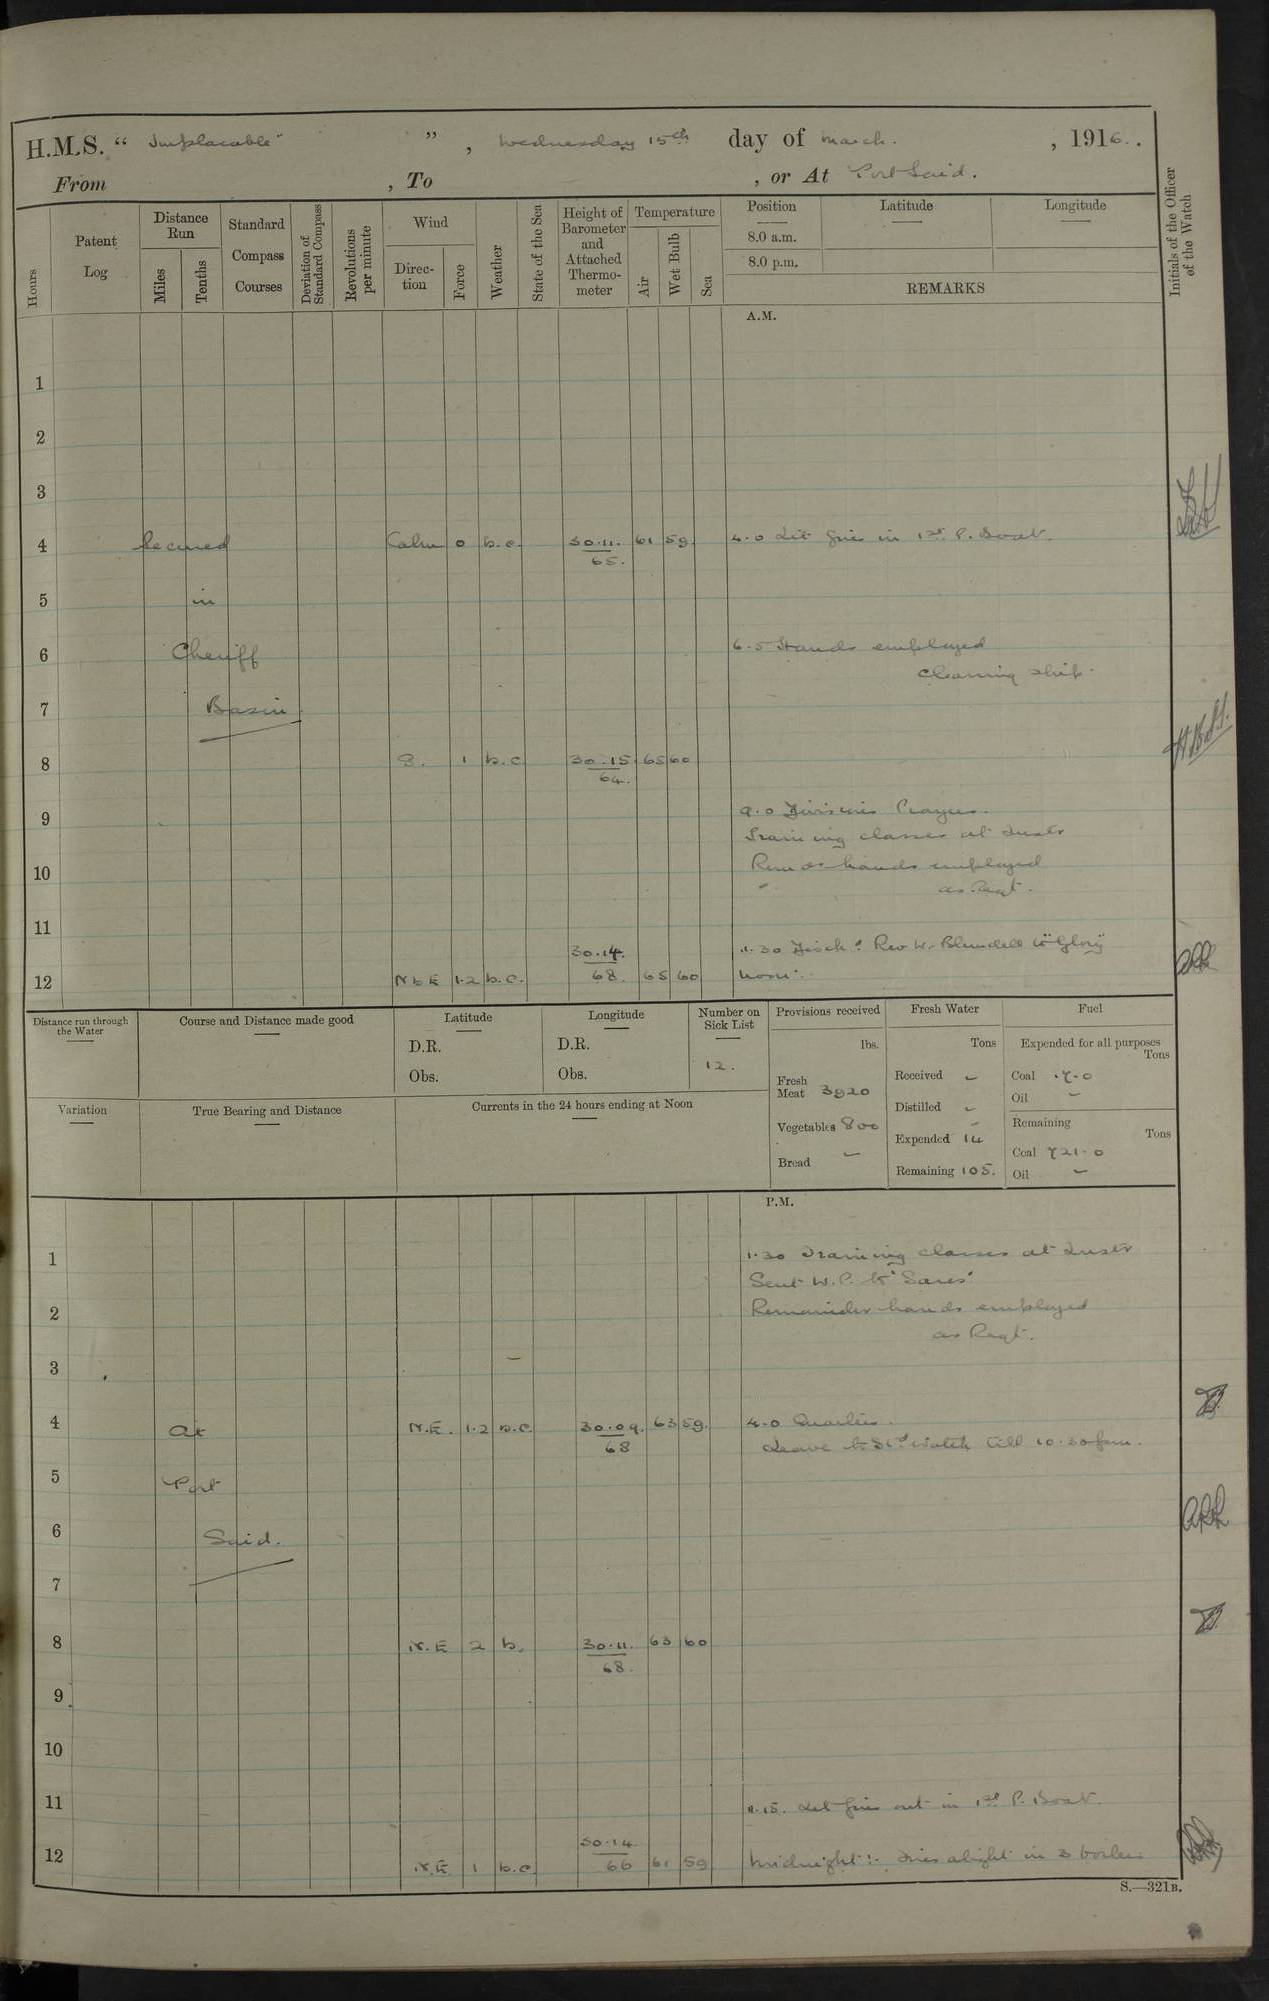 H.M.S. "Implacable" ", Wednesday 15th day of March. , 1916.
From , To , or At Port Said.
Hours
Patent Log
Distance Run
Miles
Tenths
Standard Compass Courses
Deviation of Standard Compass
Revolutions per minute
Wind
Direction
Force
Weather
State of the Sea
Height of Barometer and Attached Thermometer
Temperature
Air
Wet Bulb
Sea
Position Latitude Longitude
8.0 a.m.
8.0 p.m.
REMARKS
Initials of the Officer of the Watch
A.M.
1
2
3
4 Secured Calm 0 b.c. 30.11. 61 59 4.0 Lit fires in 1st P. Boat.
65.
5 in
6 Cheriff 6.5 Hands employed
cleaning ship.
7 Basin
8 S. 1 b.c 30.15 65 60
64.
9 9.0 Divisions Prayers.
Training classes at Instr
10 Remdr hands employed
as Reqt.
11
30.14. 11.30 Disch: Rev W. Blundell to "Glory"
12 N b E 1.2 b.c. 68. 65 60 Noon:
Distance run through the Water
Course and Distance made good
Latitude
D.R.
Obs.
Longitude
D.R.
Obs.
Number on Sick List
12.
Provisions received
lbs.
Fresh Meat 3920
Vegetables 800
Bread –
Fresh Water
Tons
Received –
Distilled –
Expended 14
Remaining 105.
Fuel
Expended for all purposes
Tons
Coal .7.0
Oil –
Remaining
Tons
Coal 721.0
Oil –
Variation
True Bearing and Distance
Currents in the 24 hours ending at Noon
P.M.
1 1.30 Training classes at Instr
Sent W.P. to
2 Remainder hands employed
as Reqt.
3
4 At N.E. 1.2 b.c. 30.09. 63 59. 4.0 Quarters.
68 Leave to Watch till 10.30 pm.
5 Port
6 Said.
7
8 N.E 2 b. 30.11. 63 60
68.
9
10
11 11.15. Let fires out in 1st P. Boat.
30.14
12 N.E 1 b.c. 66 61 59 Midnight:- Fires alight in 3 boilers
S.—321B.